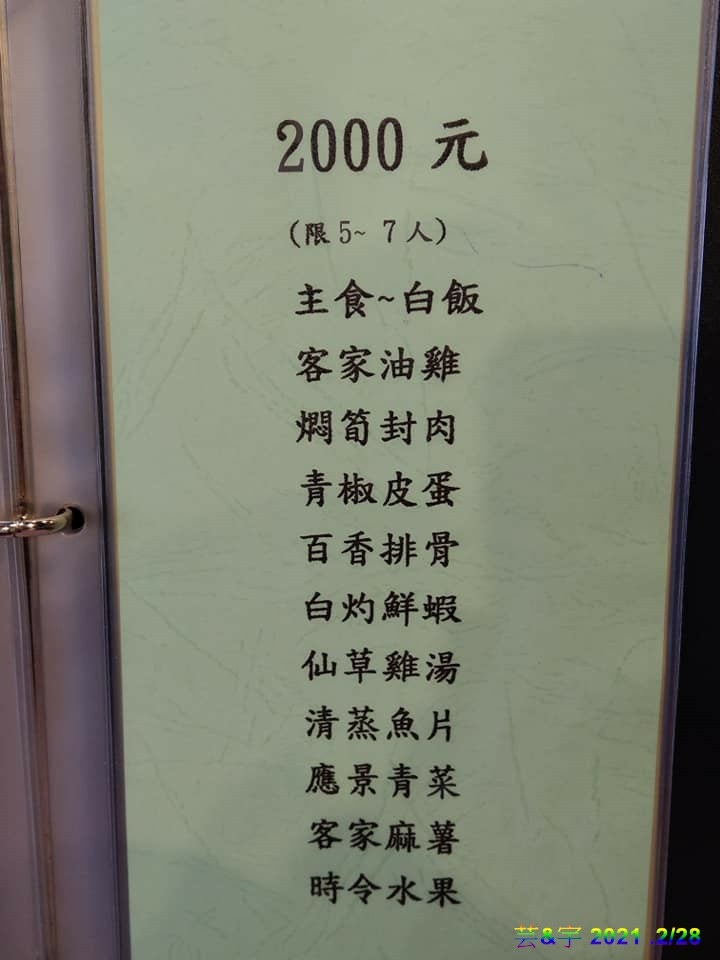 2000 元
(限 5~ 7 人)
主食~白飯
客家油雞
燜筍封肉
青椒皮蛋
百香排骨
白灼鮮蝦
仙草雞湯
清蒸魚片
應景青菜
客家麻薯
時令水果
芸&宇 2021 .2/28